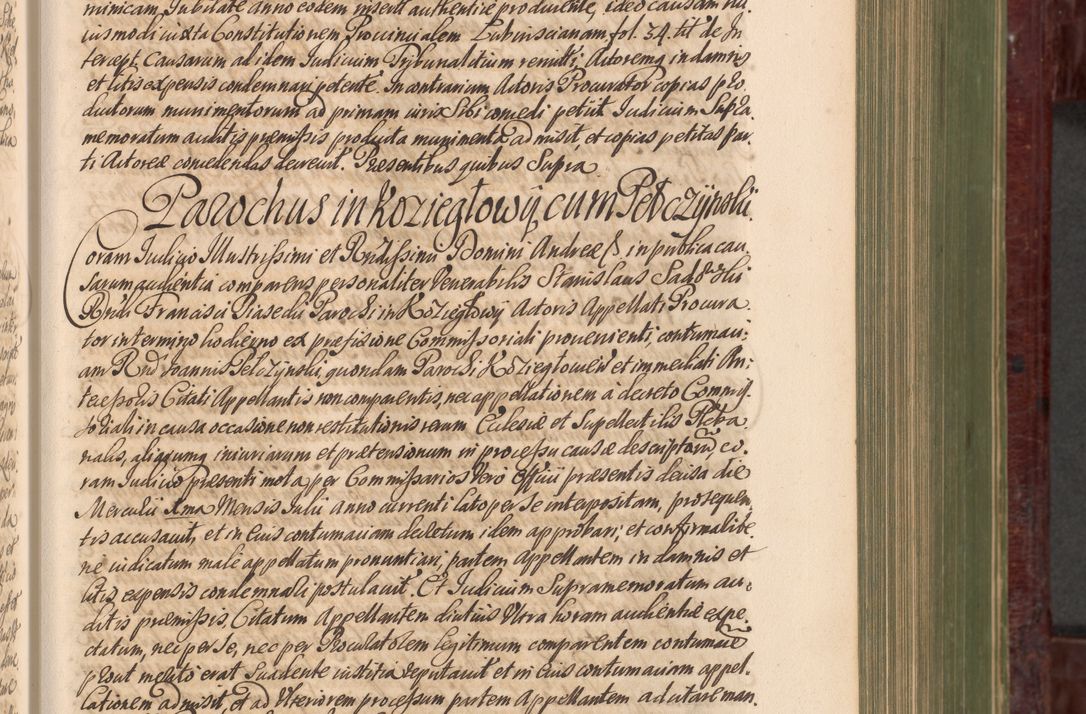 minicam Jubilate anno eodem insert authentice producente, ideo causam hu
iusmodi iuxta Constitutionem Provincialem Lubinscianam, fol. 34. tit de In
tercept. Causarum ad idem Judicium Trybunalitium remitti; Actoremq in damnis
et litis expensis condemnari petente. In contrarium Actoris Procurator copias pro
ductorum munimentorum ad primam iuris Sibi concedi petiit Judicium Supra
memoratum auditis praemissis producta munimenta admisit, et copias petitas par
ti Actoreae concedendas decrevit. Praesentibus quibus Supra
Parochus in Koziegłowÿ cum Pełczÿnskii
Coram Judicio Illustrissimi et Rndissimi Domini Andreae S. in publica cau
sarum audientia comparens personaliter Venerabilis Stanislaus Sadowski
Rndi Francisci Biasecki Parochi in Koziegłowÿ Actoris Appellati Procura
tor in termino hodierno ex praefixione Commissoriali provenienti, contumaci
am Rndi Joannis Pełczÿnski, quondam Parochi Koziegłowien et immediati An
tecessoris Citati Appellantis non comparentis, nec appellationem à decreto Commis
soriali in causa occasione non restitutionis rerum Ecclesiae et Supellectilis Plebá
nalis, aliarumq iniuriarum et praetensionum in processu causae descriptarum, co
ram Judicio praesenti mota, per Commissarios Vero Officii praesentis decisa die
Mercurii 1ma Mensis Julii anno currenti lato per Se interpositam, prosequen
tis accusavit, et in Eius contumaciam decretum idem approbari, et confirmari be
ne iudicatum male appellatum pronuntiari, partem Appellantem in damnis et
litis expensis condemnari postulavit. Et Judicium Supramemoratum au
ditis praemissis Citatum Appellantem diutius Ultra horam audientiae expe
ctatum, nec per Se, nec per Procuratorem legitimum comparentem contumacē
prout merito erat Suadente iustitia reputavit et in Eius contumaciam appel
lationem admisit, et ad Ulteriorem processum partem Appellantem ad citare man